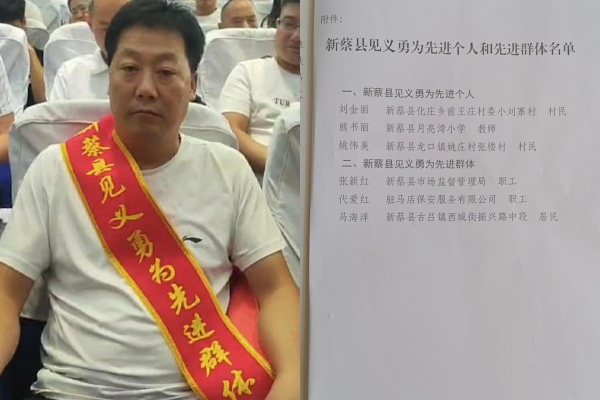 新蔡县见义勇为先进群体
TUR
附件：
新蔡县见义勇为先进个人和先进群体名单
一、新蔡县见义勇为先进个人
刘金丽 新蔡县化庄乡前王庄村委小刘寨村 村民
熊书丽 新蔡县月亮湾小学 教师
姚伟英 新蔡县龙口镇姚庄村张楼村 村民
二、新蔡县见义勇为先进群体
张新红 新蔡县市场监督管理局 职工
代爱红 驻马店保安服务有限公司 职工
马海洋 新蔡县古吕镇西城街振兴路中段 居民